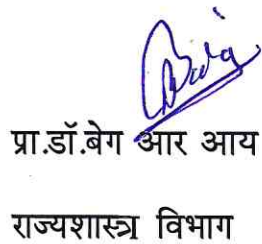 प्रा.डॉ.बेग आर आय
राज्यशास्त्र विभाग